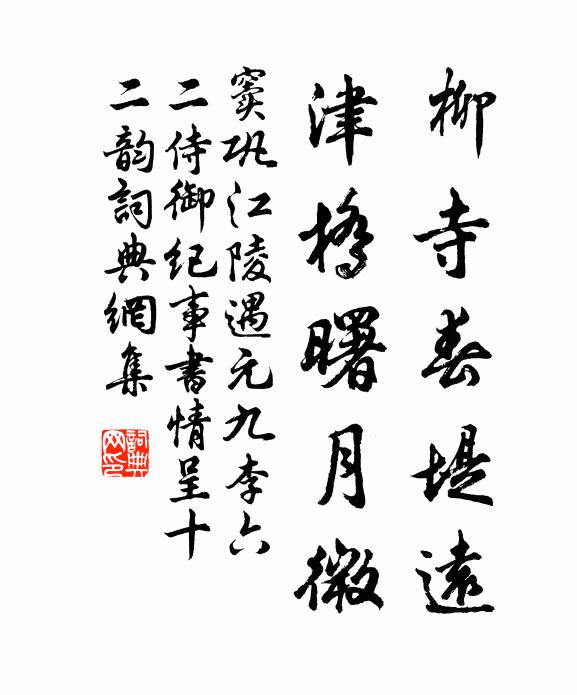 柳寺春堤遠
津橋曙月微
竇巩江陵遇元九李六
二侍御紀事書情呈十
二韵詞典網集
詞典网印